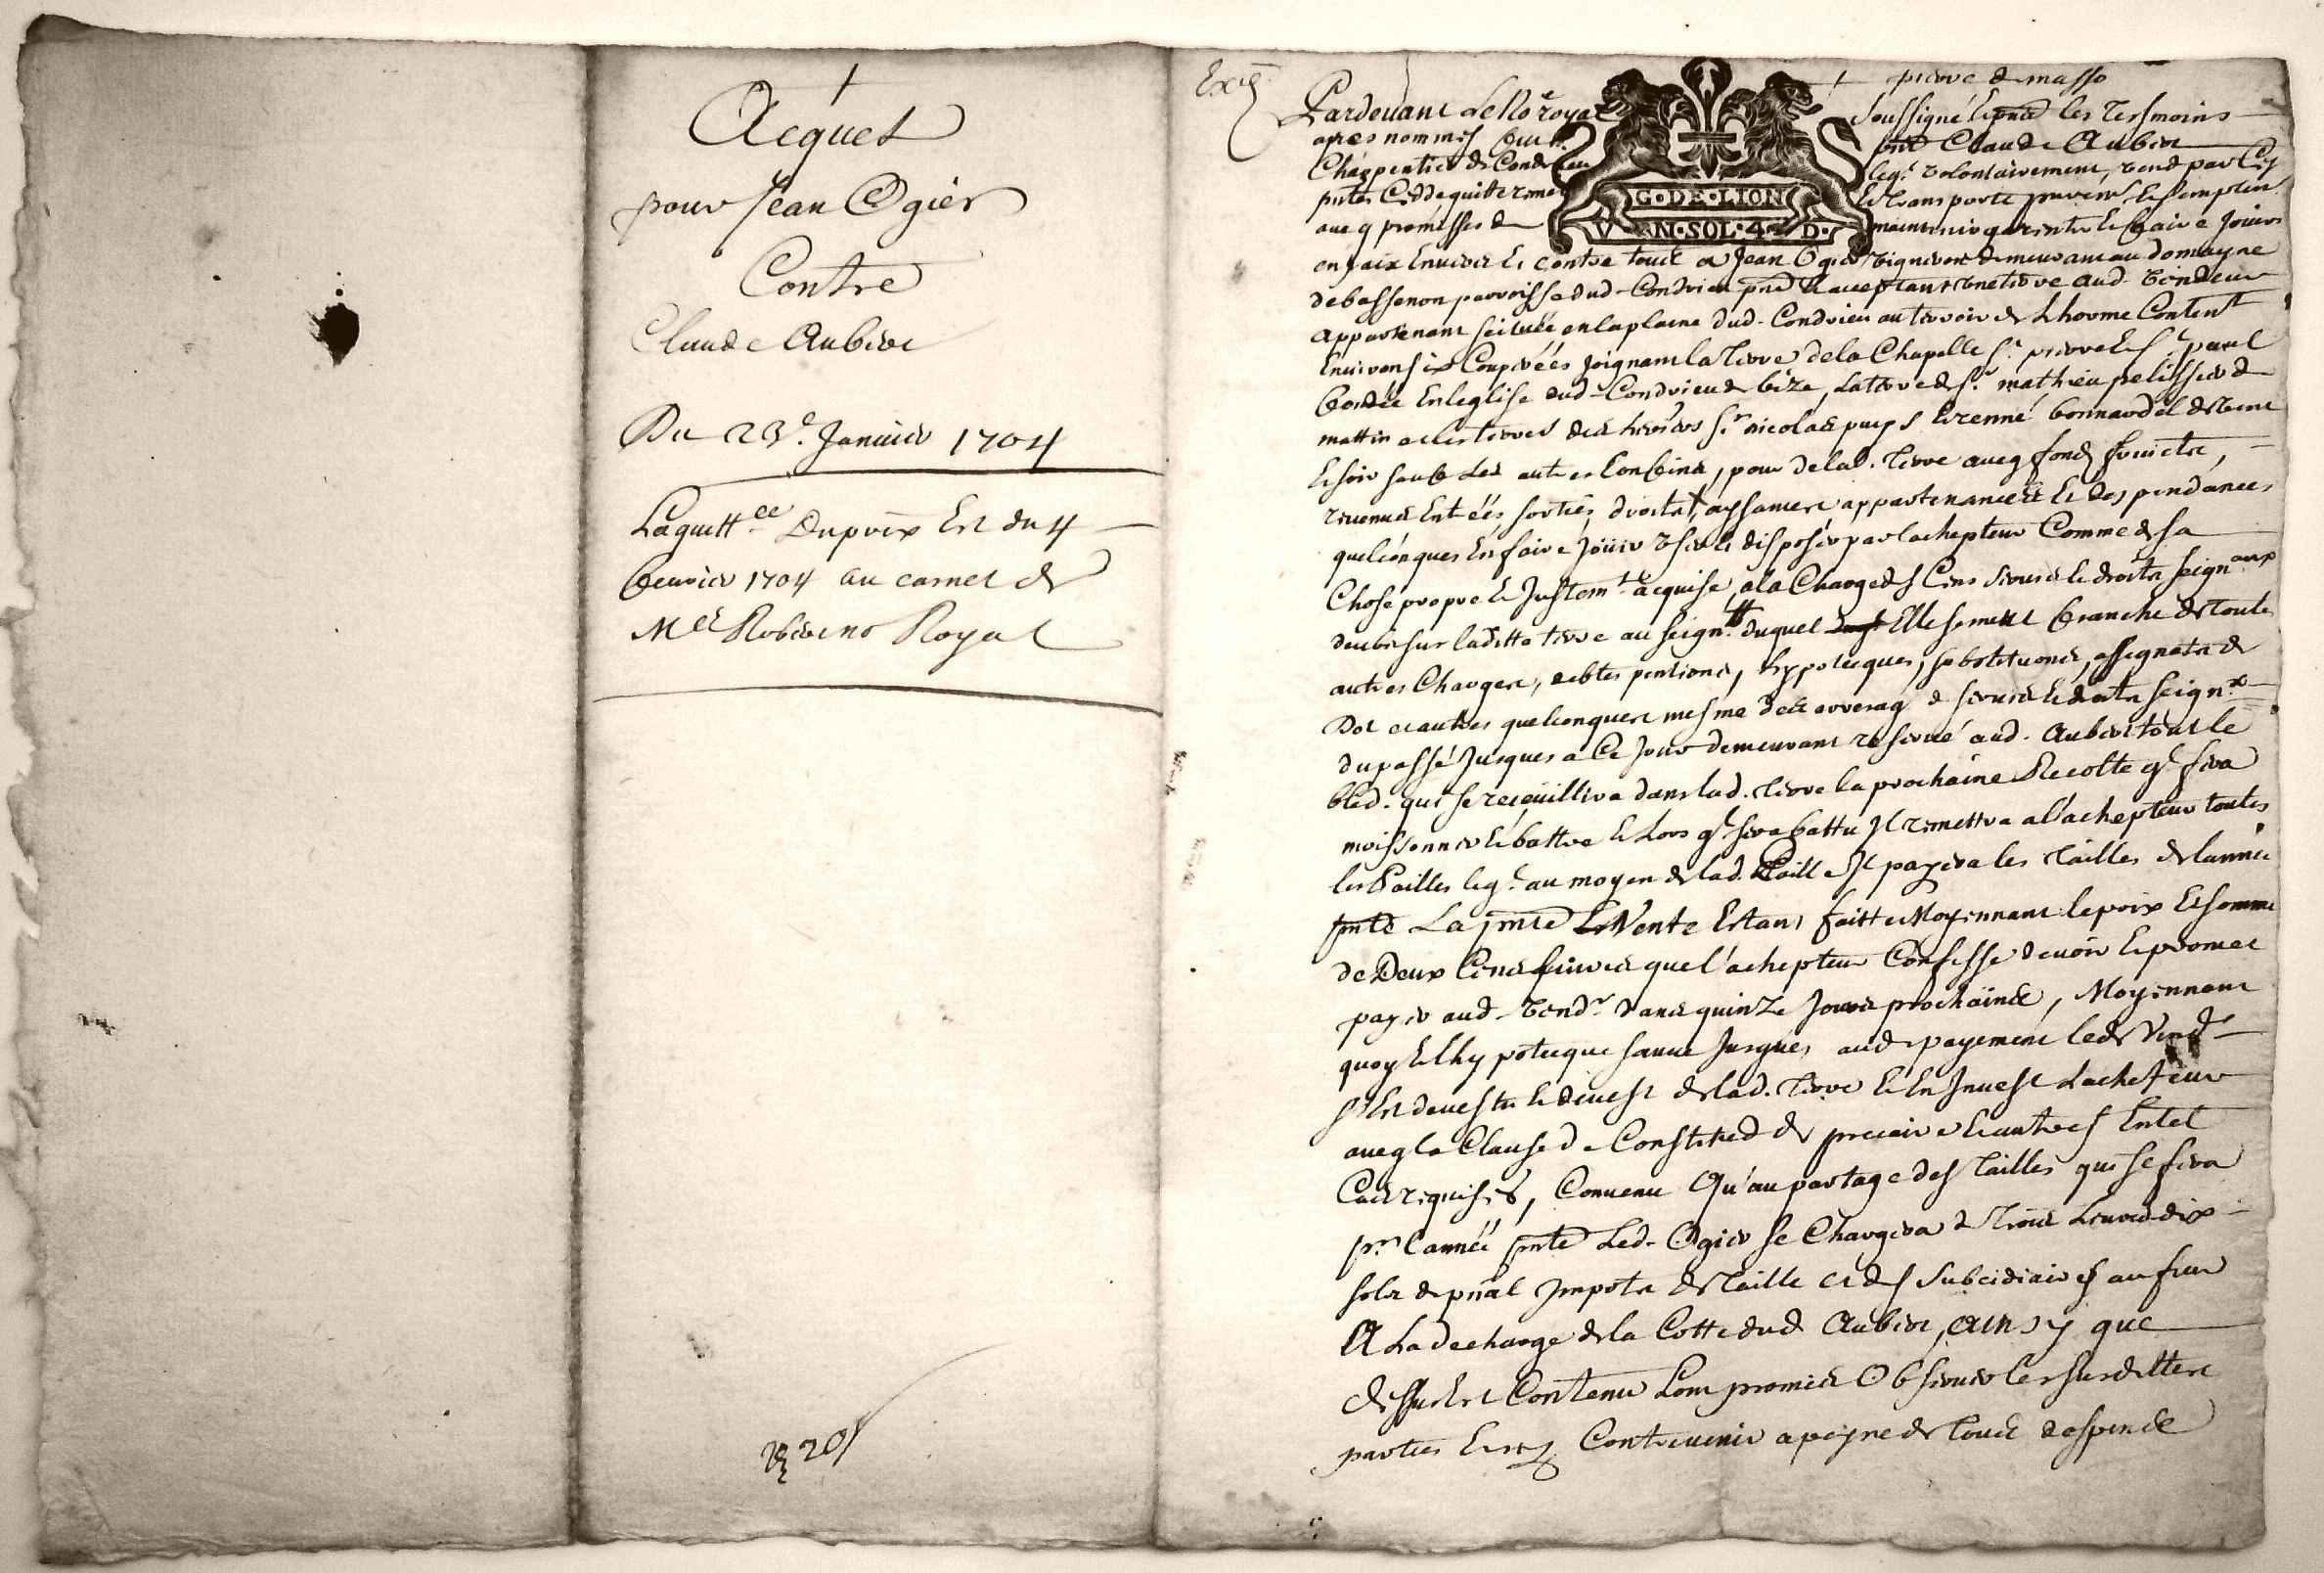 Acquet
pour Jean Ogier
Contre
Claude Aubert
Du 23e. Januier 1704
Laquittce Duprix Est du 4
feurier 1704 au carnet de
Royal
20s
Exp
pierre de masso
Pardeuant Le No.re royal soussigné Et pnts les Tesmoins
apres nommés fut Claude Aubert
Charpentier de Condrieu leql. volontairement, vend par Ces
pntes Cedde quitte remet Et transporte
aueq promesses de G·DE·LION maintenir garentir Et faire Jouir
V·N·SOL·4·D·
en paix Enuers Et contre tous a Jean Ogier vigneron demeurant au domayne
de bassenon parroisse dud. Condrieu pnt Et acceptant Une terre aud. vendeur
appartenant scituée en la plaine dud. Condrieu au terroir de Lhorme Content
Enuiron six Couppées joignant la Terre de la Chapelle St. pierre Et St. paul
fondée En leglise dud. Condrieu de bize, La terre de Sr. mathieu pelissier de
mattin a les terres des hoirs Sr. nicolas Et renné bonnardel de vent
Et soir sauf Les autres Confins, pour delad. Terre aueq fonds fruicts,
reuenus Entrées sorties, droicts, aysances appartenances Et Despendances
quelconques En faire Joüir vser Et disposer par lachepteur Comme de sa
Chose propre Et Justemt. acquise, a la Charge des Cens seruis Et droits seignaux
deubs sur laditte terre au seignr. duquel Elle se meut franche de toutes
autres Charges, debtes pentions, hyppotecques, substitutions, assignats de
Dot et autres quelconques mesme des arrerages de seruis Et droits seignx.
du passé Jusques a Ce Jour demeurant reserué aud. Aubert tout le
bled. qui se recüeillira dans lad. Terre la prochaine Recolte ql. fera
moissonner Et battre Et Lors ql. sera battu Il remettra a l'achepteur toutes
les Pailles leql. au moyen de lad. Paille Il payera les Tailles de lannée
pnte La pnte Vente Estant faitte Moyennant le prix Et somme
de Deux Cents liures que l'achepteur Confesse deuoir Et promet
payer aud. vendr. dans quinze Jours prochains, Moyennant
quoy Et lhypotecque sauue Jusques aud. payement led. Vendr.
s'Est deuestu Et deuest de lad. Terre Et En Inuest Lacheteur
aueq la Clause de Constitut de precaire Et autres En tel
Cas requises, Conuenu Qu'au partage des Tailles qui se fera
pr. l'année pnte Led. Ogier se Chargera de Trois Liures dix
sols de pñal Impots de Taille et des Subcidiaires au fur
A La decharge de la Cotte dud. Aubert, ainsy que
dessus Est Contenu Lont promis Obseruer les susdittes
parties Et ny Contreuenir a peyne de Tous despends